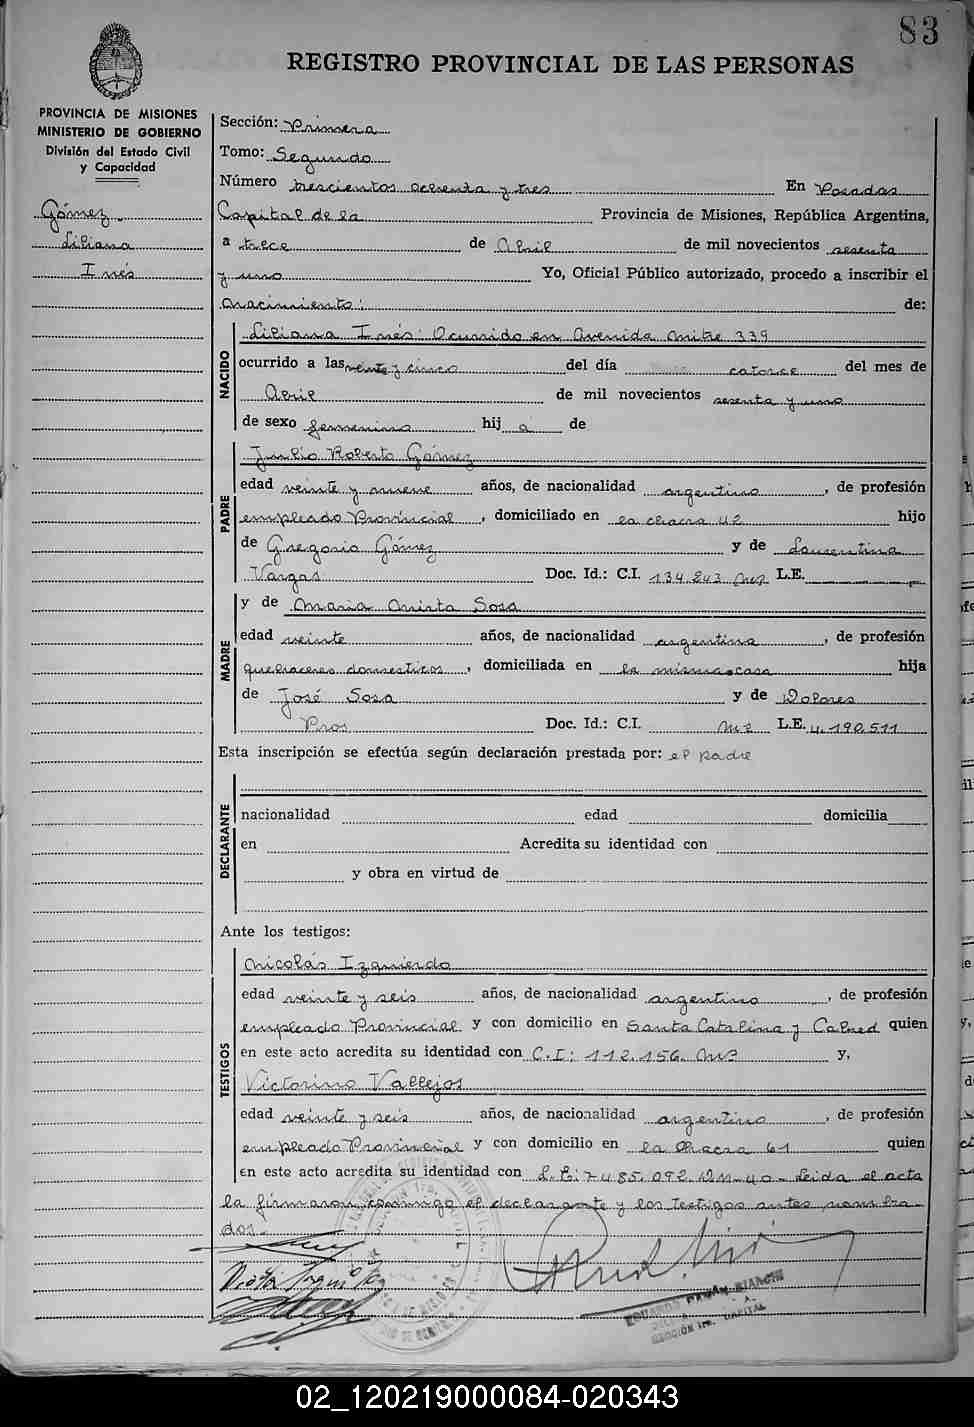 83
REGISTRO PROVINCIAL DE LAS PERSONAS
PROVINCIA DE MISIONES
MINISTERIO DE GOBIERNO
División del Estado Civil
y Capacidad
Gómez
Liliana
Inés
Sección: Primera
Tomo: Segundo
Número trescientos ochenta y tres En Posadas
Capital de la Provincia de Misiones, República Argentina,
a trece de Abril de mil novecientos sesenta
y uno Yo, Oficial Público autorizado, procedo a inscribir el
nacimiento: de:
NACIDO
Liliana Inés: Ocurrido en Avenida Mitre 339
ocurrido a las veinte y cinco del día catorce del mes de
Abril de mil novecientos sesenta y uno
de sexo femenino hij a de
PADRE
Julio Roberto Gómez
edad veinte y nueve años, de nacionalidad argentino, de profesión
empleado Provincial, domiciliado en la chacra 42 hijo
de Gregorio Gómez y de Laurentina
Vargas Doc. Id.: C.I. 134.243 L.E.
MADRE
y de Maria Mirta Sosa
edad veinte años, de nacionalidad argentina, de profesión
quehaceres domesticos, domiciliada en la misma casa hija
de José Sosa y de Dolores
Pros Doc. Id.: C.I. L.E. 4.190.511
Esta inscripción se efectúa según declaración prestada por: el padre
DECLARANTE
nacionalidad edad domicilia
en Acredita su identidad con
y obra en virtud de
Ante los testigos:
TESTIGOS
Nicolás Izquierdo
edad veinte y seis años, de nacionalidad argentino, de profesión
empleado Provincial y con domicilio en Santa Catalina y quien
en este acto acredita su identidad con C.I: 112.156. y,
Victorino Vallejos
edad veinte y seis años, de nacionalidad argentino, de profesión
empleado Provincial y con domicilio en la chacra 61 quien
en este acto acredita su identidad con L.E: 7485.092 DM-40- Leida el acta
la firmaron conmigo el declarante y los testigos antes nombra-
dos.
EDUARDO BIANCHI
SECCIÓN 1ra. CAPITAL
02_120219000084-020343